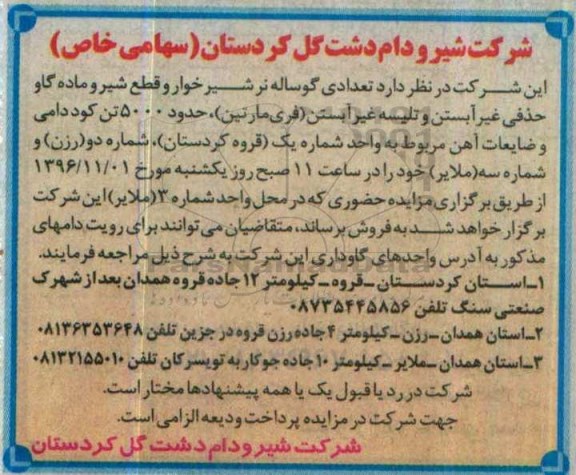 شرکت شیر و دام دشت گل کردستان (سهامی خاص)
این شرکت در نظر دارد تعدادی گوساله نر شیرخوار و قطع شیر و ماده گاو
حذفی غیر آبستن و تلیسه غیر آبستن (فری مارتین)، حدود ۵۰۰۰ تن کود دامی
و ضایعات آهن مربوط به واحد شماره یک (قروه کردستان)، شماره دو (رزن) و
شماره سه (ملایر) خود را در ساعت ۱۱ صبح روز یکشنبه مورخ ۱۳۹۶/۱۱/۰۱
از طریق برگزاری مزایده حضوری که در محل واحد شماره ۳ (ملایر) این شرکت
برگزار خواهد شد به فروش برساند، متقاضیان می توانند برای رویت دامهای
مذکور به آدرس واحدهای گاوداری این شرکت به شرح ذیل مراجعه فرمایند.
۱ـ استان کردستان ـ قروه ـ کیلومتر ۱۲ جاده قروه همدان بعد از شهرک
صنعتی سنگ تلفن ۰۸۷۳۵۴۴۵۸۵۶
۲ـ استان همدان ـ رزن ـ کیلومتر ۴ جاده رزن قروه در جزین تلفن ۰۸۱۳۶۳۵۳۶۴۸
۳ـ استان همدان ـ ملایر ـ کیلومتر ۱۰ جاده جوکار به تویسرکان تلفن ۰۸۱۳۲۱۵۵۰۱۰
شرکت در رد یا قبول یک یا همه پیشنهادها مختار است.
جهت شرکت در مزایده پرداخت ودیعه الزامی است.
شرکت شیر و دام دشت گل کردستان